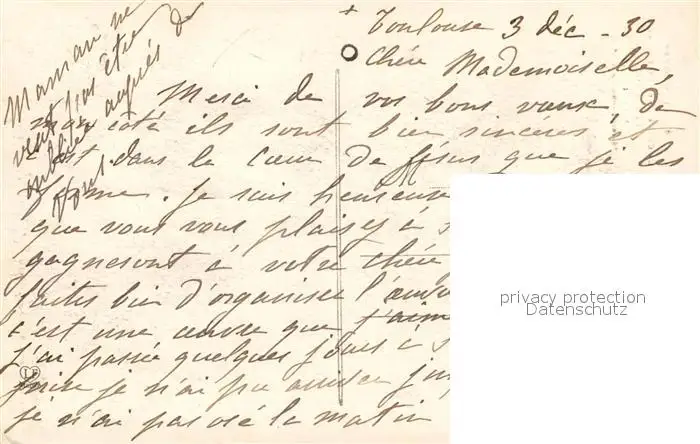 Toulouse 3 déc - 30
Chère Mademoiselle,
Merci de vos bons vœux, de
mon côté ils sont bien sincères et
c'est dans le cœur de Jésus que je les
forme. Je suis heureuse
que vous vous plaisez à
gagneront à votre chère
faites bien d'organiser l'œuvre
c'est une œuvre que j'aim
j'ai passé quelques jours à
je n'ai pu
je n'ai pas osé le matin
Maman ne
veut pas être
oubliée auprès de
vous.
privacy protection
Datenschutz